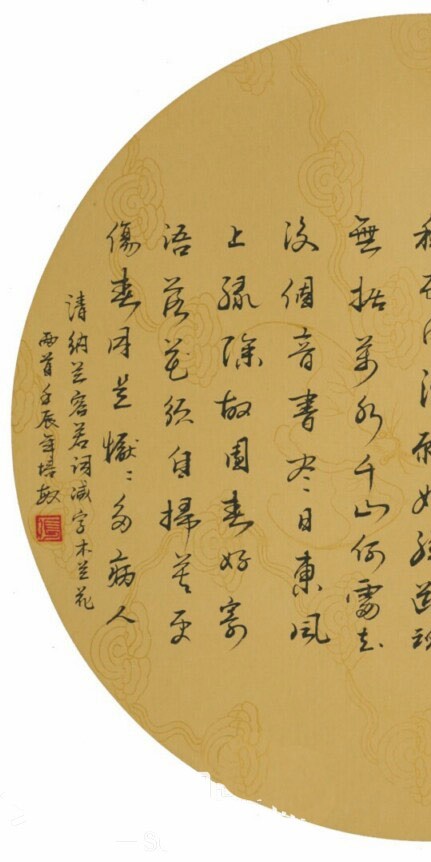 無据萬水千山何處去
没個音書尽日東風
上綠除故園春好寄
語落花須自掃莫更
傷春同是懨〻多病人
清納兰容若词减字木兰花
两首壬辰年培敏